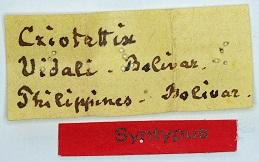 Criotettix
Vidali - Bolivar.
Philippines - Bolivar.
Syntypus